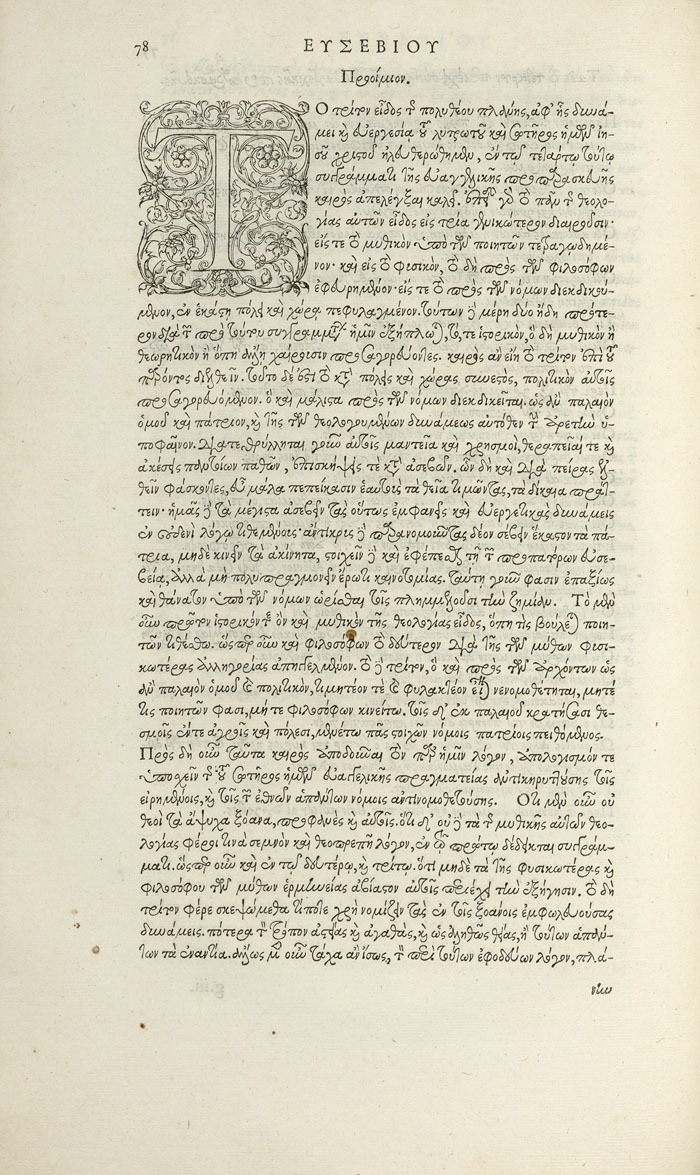 78 ΕΥΣΕΒΙΟΥ
Προοίμιον.
ΤΟ τρίτον εἶδος τῆς πολυθέου πλάνης, ἀφ’ ἧς δυνά-
μει καὶ εὐεργεσίᾳ τοῦ λυτρωτοῦ καὶ σωτῆρος ἡμῶν ἰη-
σοῦ χριστοῦ ἠλευθερώθημεν, ἐν τῷ τετάρτῳ τούτῳ
συγγράμματι τῆς εὐαγγελικῆς προπαρασκευῆς
καιρὸς ἀπελέγξαι καλεῖ. ἐπειδὴ γὰρ τὸ πᾶν τῆς θεολο-
γίας αὐτῶν εἶδος εἰς τρία γενικώτερον διαιροῦσιν·
εἴς τε τὸ μυθικὸν ὑπὸ τῶν ποιητῶν τετραγῳδημέ-
νον· καὶ εἰς τὸ φυσικὸν, τὸ δὴ πρὸς τῶν φιλοσόφων
ἐφευρημένον· εἴς τε τὸ πρὸς τῶν νόμων διεκδικού-
μενον, ἐν ἑκάστῃ πόλει καὶ χώρᾳ πεφυλαγμένον. τούτων δὲ μέρη δύο ἤδη πρότε-
ρον διὰ τῶν πρὸ τούτου συγγραμμάτων ἡμῖν ἐξήπλωται, τό, τε ἱστορικὸν, ὃ δὴ μυθικὸν ἢ
θεωρητικὸν ἢ ὅπη ἄλλῃ χαίρουσιν προσαγορεύοντες. καιρὸς ἂν εἴη τὸ τρίτον ἐπὶ τοῦ
παρόντος διελθεῖν. τοῦτο δέ ἐστι τὸ κατὰ πόλεις καὶ χώρας συνεστὸς, πολιτικὸν αὐτοῖς
προσαγορευόμενον. ὃ καὶ μάλιστα πρὸς τῶν νόμων διεκδικεῖται. ὡς ἂν παλαιὸν
ὁμοῦ καὶ πάτριον, καὶ τῆς τῶν θεολογουμένων δυνάμεως αὐτόθεν τὴν ἀρετὴν ὑ-
ποφαῖνον. διατεθρύλληται γοῦν αὐτοῖς μαντεῖα καὶ χρησμοὶ, θεραπεῖαί τε καὶ
ἀκέσεις παντοίων παθῶν, ἐπισκήψεις τε κατὰ ἀσεβῶν. ὧν δὴ καὶ διὰ πείρας ἐλ-
θεῖν φάσκοντες, εὖ μάλα πεπείκασιν ἑαυτοὺς τὰ θεῖα τιμῶντας, τὰ δίκαια πράτ-
τειν· ἡμᾶς δὲ τὰ μέγιστα ἀσεβεῖν τὰς οὕτως ἐμφανεῖς καὶ εὐεργετικὰς δυνάμεις
ἐν οὐδενὶ λόγῳ τιθεμένους· ἄντικρυς δὲ παρανομοῦντας δέον σέβειν ἕκαστον τὰ πά-
τρια, μηδὲ κινεῖν τὰ ἀκίνητα, στοιχεῖν δὲ καὶ ἐφέπεσθαι τῇ τῶν προπατέρων εὐσε-
βείᾳ, ἀλλὰ μὴ πολυπραγμονεῖν ἔρωτι καινοτομίας. ταύτῃ γοῦν φασιν ἐπαξίως
καὶ θάνατον ὑπὸ τῶν νόμων ὡρίσθαι τοῖς πλημμελοῦσι τὴν ζημίαν. Τὸ μὲν
οὖν πρῶτον ἱστορικόν τε ὂν καὶ μυθικὸν τῆς θεολογίας εἶδος, ὅπῃ τις βούλεται ποιη-
τῶν τιθέσθω. ὥσπερ οὖν καὶ φιλοσόφων τὸ δεύτερον διὰ τῆς τῶν μύθων φυσι-
κωτέρας ἀλληγορίας ἀπηγγελμένον. τὸ δὲ τρίτον, ὃ καὶ πρὸς τῶν ἀρχόντων ὡς
ἂν παλαιὸν ὁμοῦ καὶ πολιτικὸν, τιμητέον τε καὶ φυλακτέον εἶναι νενομοθέτηται, μήτέ
τις ποιητῶν φασι, μήτε φιλοσόφων κινείτω. τοῖς δ’ ἐκ παλαιοῦ κρατήσασι θε-
σμοῖς ἔν τε ἀγροῖς καὶ πόλεσι, μενέτω πᾶς στοιχῶν νόμοις πατρίοις πειθόμενος.
Πρὸς δὴ οὖν ταῦτα καιρὸς ἀποδοῦναι τὸν παρ’ ἡμῖν λόγον, ἀπολογισμόν τε
ὑποσχεῖν τῆς τοῦ σωτῆρος ἡμῶν εὐαγγελικῆς πραγματείας ἀντικηρυττούσης τοῖς
εἰρημένοις, καὶ τοῖς τῶν ἐθνῶν ἁπάντων νόμοις ἀντινομοθετούσης. Ὅτι μὲν οὖν οὐ
θεοὶ τὰ ἄψυχα ξόανα, προφανὲς καὶ αὐτοῖς. ὅτι δ’ οὐδὲ τὰ τῆς μυθικῆς αὐτῶν θεο-
λογίας φέροι τινὰ σεμνὸν καὶ θεοπρεπῆ λόγον, ἐν τῷ πρώτῳ δέδεικται συγγράμ-
ματι. ὥσπερ οὖν καὶ ἐν τῷ δευτέρῳ, καὶ τρίτῳ. ὅτι μηδὲ τὰ τῆς φυσικωτέρας καὶ
φιλοσόφου τῶν μύθων ἑρμηνείας ἀβίαστον αὐτοῖς περιέχει τὴν ἐξήγησιν. τὸ δὴ
τρίτον φέρε σκεψώμεθα τί ποτε χρὴ νομίζειν τὰς ἐν τοῖς ξοάνοις ἐμφωλευούσας
δυνάμεις. πότερα τὸν τρόπον ἀστείας καὶ ἀγαθὰς, καὶ ὡς ἀληθῶς θείας, ἢ τούτων ἁπάν-
των τὰ ἐναντία. ἄλλως μὲν οὖν τάχα ἂν ἴσως, τὸν περὶ τούτων ἐφοδεύων λόγον, πλά-
νην